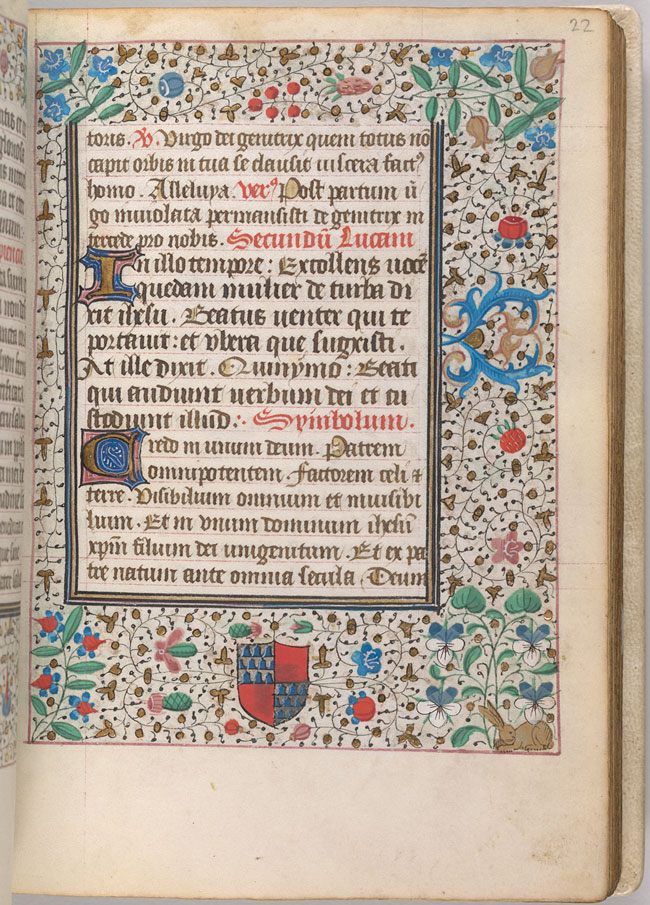 22
toris. V. Virgo dei genitrix quem totus nō
capit orbis in tua se clausit uiscera fact9
homo. Alleluya. vers9 Post partum ū
go inuiolata permansisti dei genitrix in
tercede pro nobis. Secundū Lucam
In illo tempore: Extollens uocē
quedam mulier de turba di
xit ihesu. Beatus uenter qui te
portauit: et vbera que suxisti.
At ille dixit. Quinymo: Beati
qui audiunt uerbum dei et cu
stodiunt illud. Symbolum.
Credo in unum deum. Patrem
omnipotentem factorem celi &
terre. Visibilium omnium et inuisibi
lium. Et in vnum dominum ihesū
xpm̄ filium dei unigenitum. Et ex pa
tre natum ante omnia secula. Deum